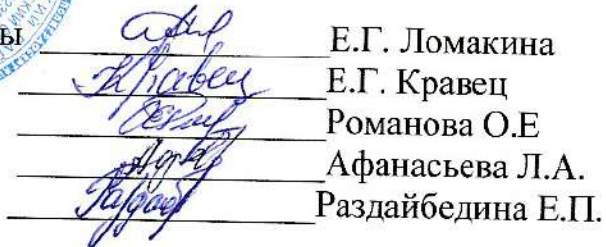 ы Е.Г. Ломакина
Кравец Е.Г. Кравец
Романова О.Е
Афанасьева Л.А.
Раздайбедина Е.П.